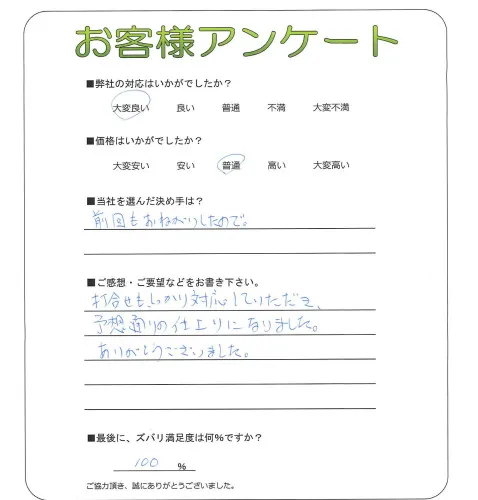 お客様アンケート
■弊社の対応はいかがでしたか？
大変良い 良い 普通 不満 大変不満
■価格はいかがでしたか？
大変安い 安い 普通 高い 大変高い
■当社を選んだ決め手は？
前回もおねがいしたので。
■ご感想・ご要望などをお書き下さい。
打合せも、しっかり対応していただき、
予想通りの仕上りになりました。
ありがとうございました。
■最後に、ズバリ満足度は何%ですか？
100 %
ご協力頂き、誠にありがとうございました。